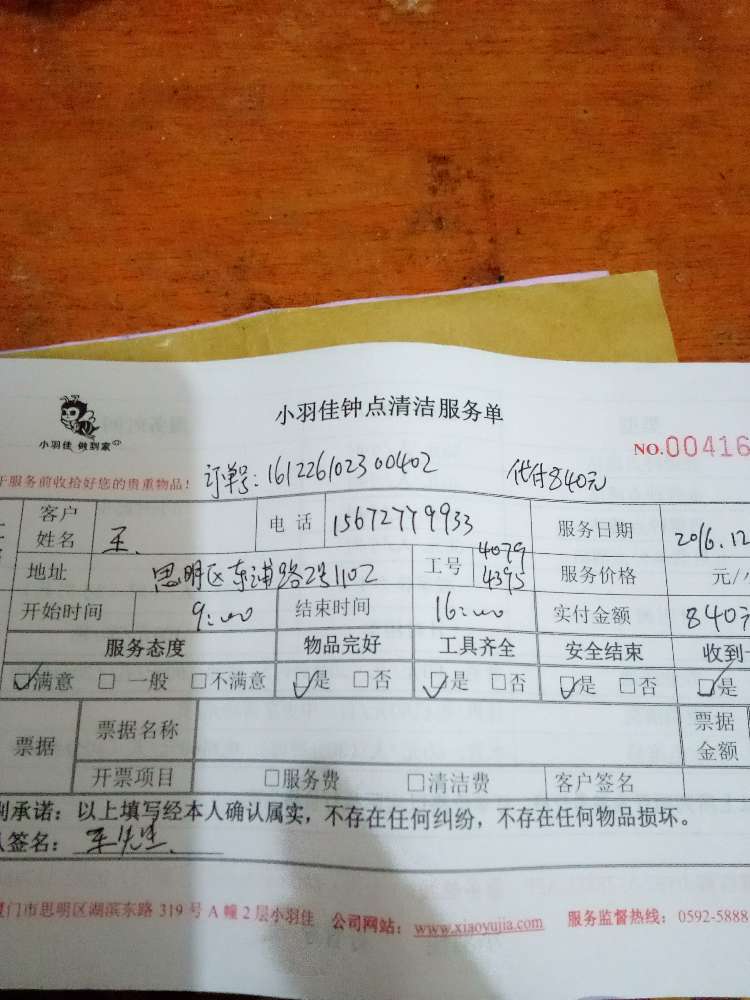 小羽佳 做到家
小羽佳钟点清洁服务单
NO.00416
于服务前收拾好您的贵重物品!
订单号:161226102300402 代付840元
客户姓名 王. 电话 15672779933 服务日期 2016.12
地址 思明区东浦路2号1102 工号 4079 4395 服务价格 元/
开始时间 9:00 结束时间 16:00 实付金额 840元
服务态度 物品完好 工具齐全 安全结束 收到
☑满意 □一般 □不满意 ☑是 □否 ☑是 □否 ☑是 □否 ☑是
票据 票据名称 票据金额
开票项目 □服务费 □清洁费 客户签名
承诺:以上填写经本人确认属实,不存在任何纠纷,不存在任何物品损坏。
签名: 王先生
门市思明区湖滨东路 319 号 A 幢 2 层小羽佳 公司网站:www.xiaoyujia.com 服务监督热线:0592-5888